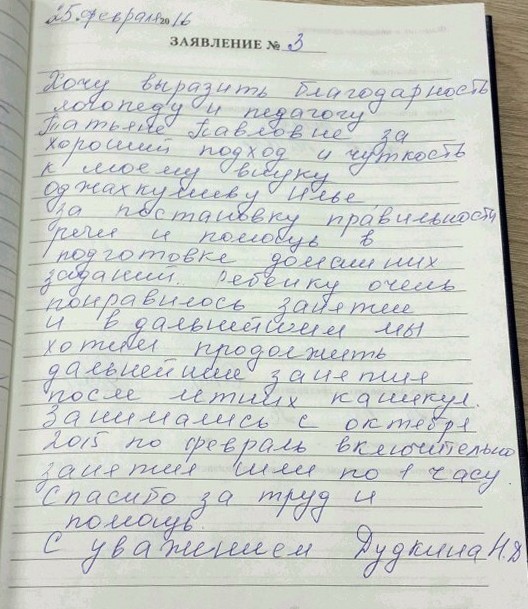 25 февраля 2016
ЗАЯВЛЕНИЕ № 3
Хочу выразить благодарность
логопеду и педагогу
Татьяне Павловне за
хороший подход и чуткость
к моему внуку
Оджахкулиеву Илье
за постановку правильности
речи и помощь в
подготовке домашних
заданий. Ребенку очень
понравилось занятие
и в дальнейшем мы
хотим продолжить
дальнейшие занятия
после летних каникул.
Занимались с октября
2015 по февраль включительно
занятия шли по 1 часу.
Спасибо за труд и
помощь.
С уважением Дудкина Н.Д